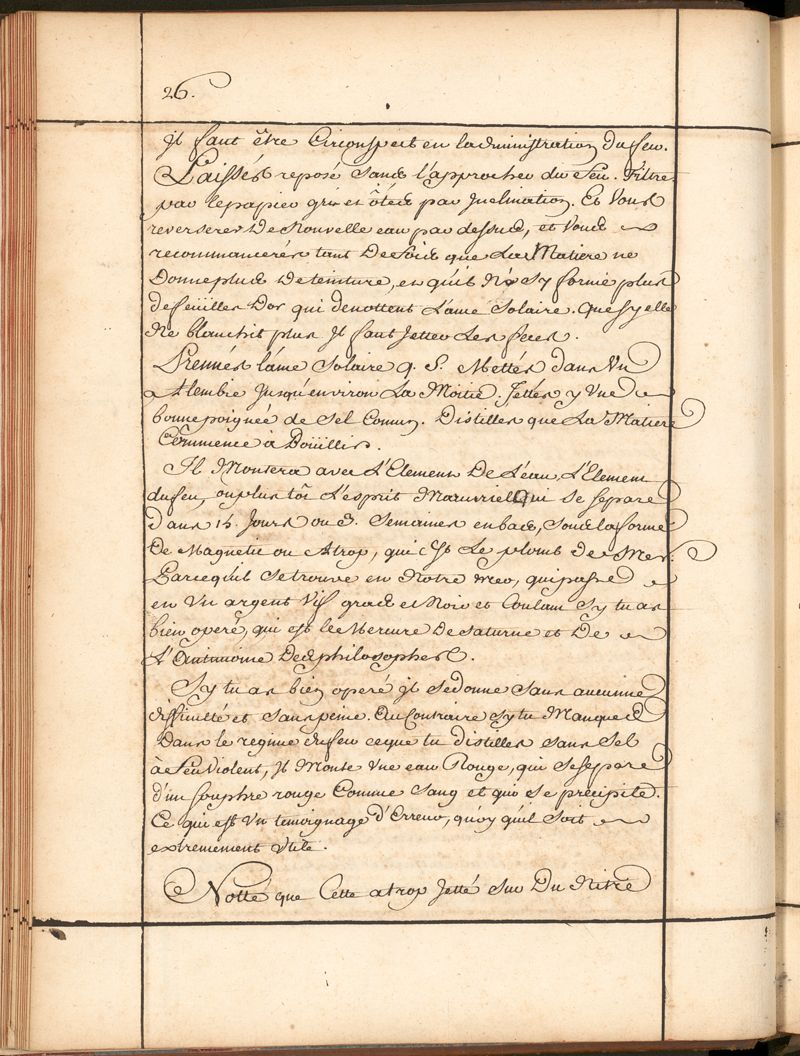 26.
Jl faut être Circonspect en ladministration du feu.
Laissés reposé sans l'approcher du Feu. Filtre
par lepapier gris et ôtés par Jnclination. Et Vous
reverserer De Nouvelle eau par dessus, et Vous
recommancerés tant De fois que La Matiere ne
Donne plus De teinture, et qu'il N'y sy forme plus
de feüilles Dor qui denottent L'ame Solaire. Que sy elle
Ne blanchit plus Jl faut Jetter Les feces.
Prennés L'ame Solaire q. S. Mettés dans Vn
Alembic Jusqu'environ La Moitie. Jettés y Vne
bonne poignée de Sel Comun. Distilles que La Matiere
Commence à Boüillir.
Jl Montera avec L'Element De L'eau, L'Element
du feu, ou plus tôt L'esprit Mercuriel Qui se separe
dans 15. Jours ou 3. Semaines en bas, sous la forme
De Magnetie ou Atrop, qui Est Le plomb de Mer.
Parcequ'il se trouve en Notre Mer, qui passe
en Vn argent Vif gras et Noir et Coulant Sy tu as
bien operé, qui est le Mercure De Saturne et De
L'Antimoine Des philosophes.
Sy tu as bien operé jl se donne sans aucunne
difficulté et sans peine. Au Contraire sy tu Manques
Dans le regime du feu ce que tu distilles sans Sel
à Feu Violent, Jl Monte Vne eau Rouge, qui se separe
d'un souphre rouge Comme Sang et qui se précipite.
Ce qui est Vn temoignage d'Erreur, quoy qu'il Soit
extremement Vtile.
Notté que Cette atrop Jetté sur Du Nitre